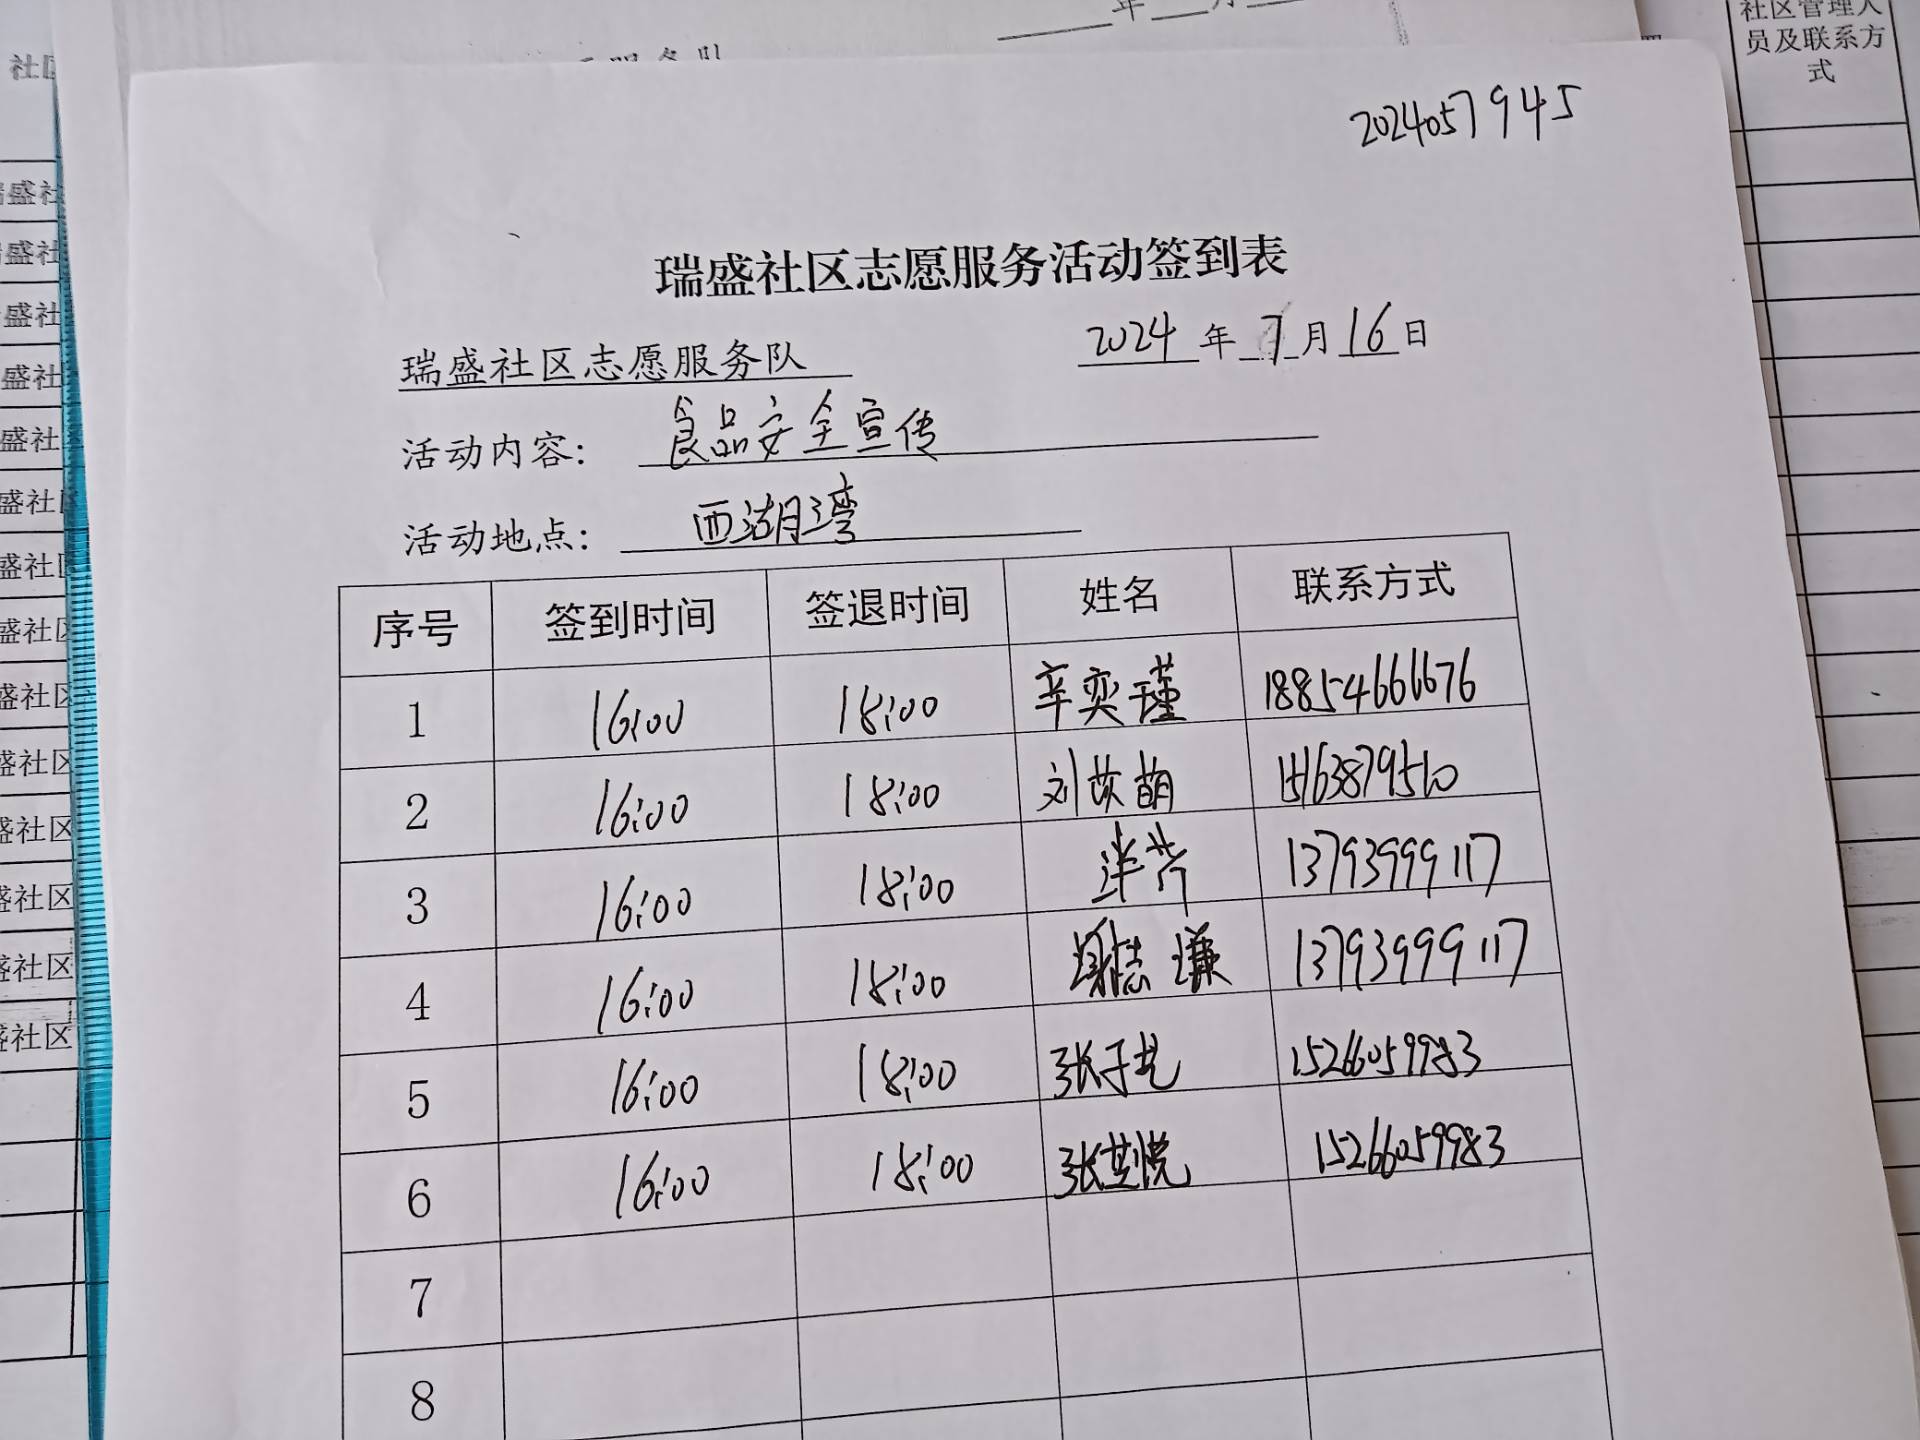 年 月
社区管理人
员及联系方
式
2024057945
瑞盛社区志愿服务活动签到表
瑞盛社区志愿服务队 2024年7月16日
活动内容: 食品安全宣传
活动地点: 西湖湾
序号 签到时间 签退时间 姓名 联系方式
1 16:00 18:00 辛奕瑾 18854666676
2 16:00 18:00 刘苡萌 15163879510
3 16:00 18:00 13793999117
4 16:00 18:00 13793999117
5 16:00 18:00 张子艺 15266059983
6 16:00 18:00 张芸悦 15266059983
7
8
盛社
盛社
盛社
盛社
盛社
盛社区
盛社区
盛社区
盛社区
盛社区
盛社区
盛社区
盛社区
盛社区